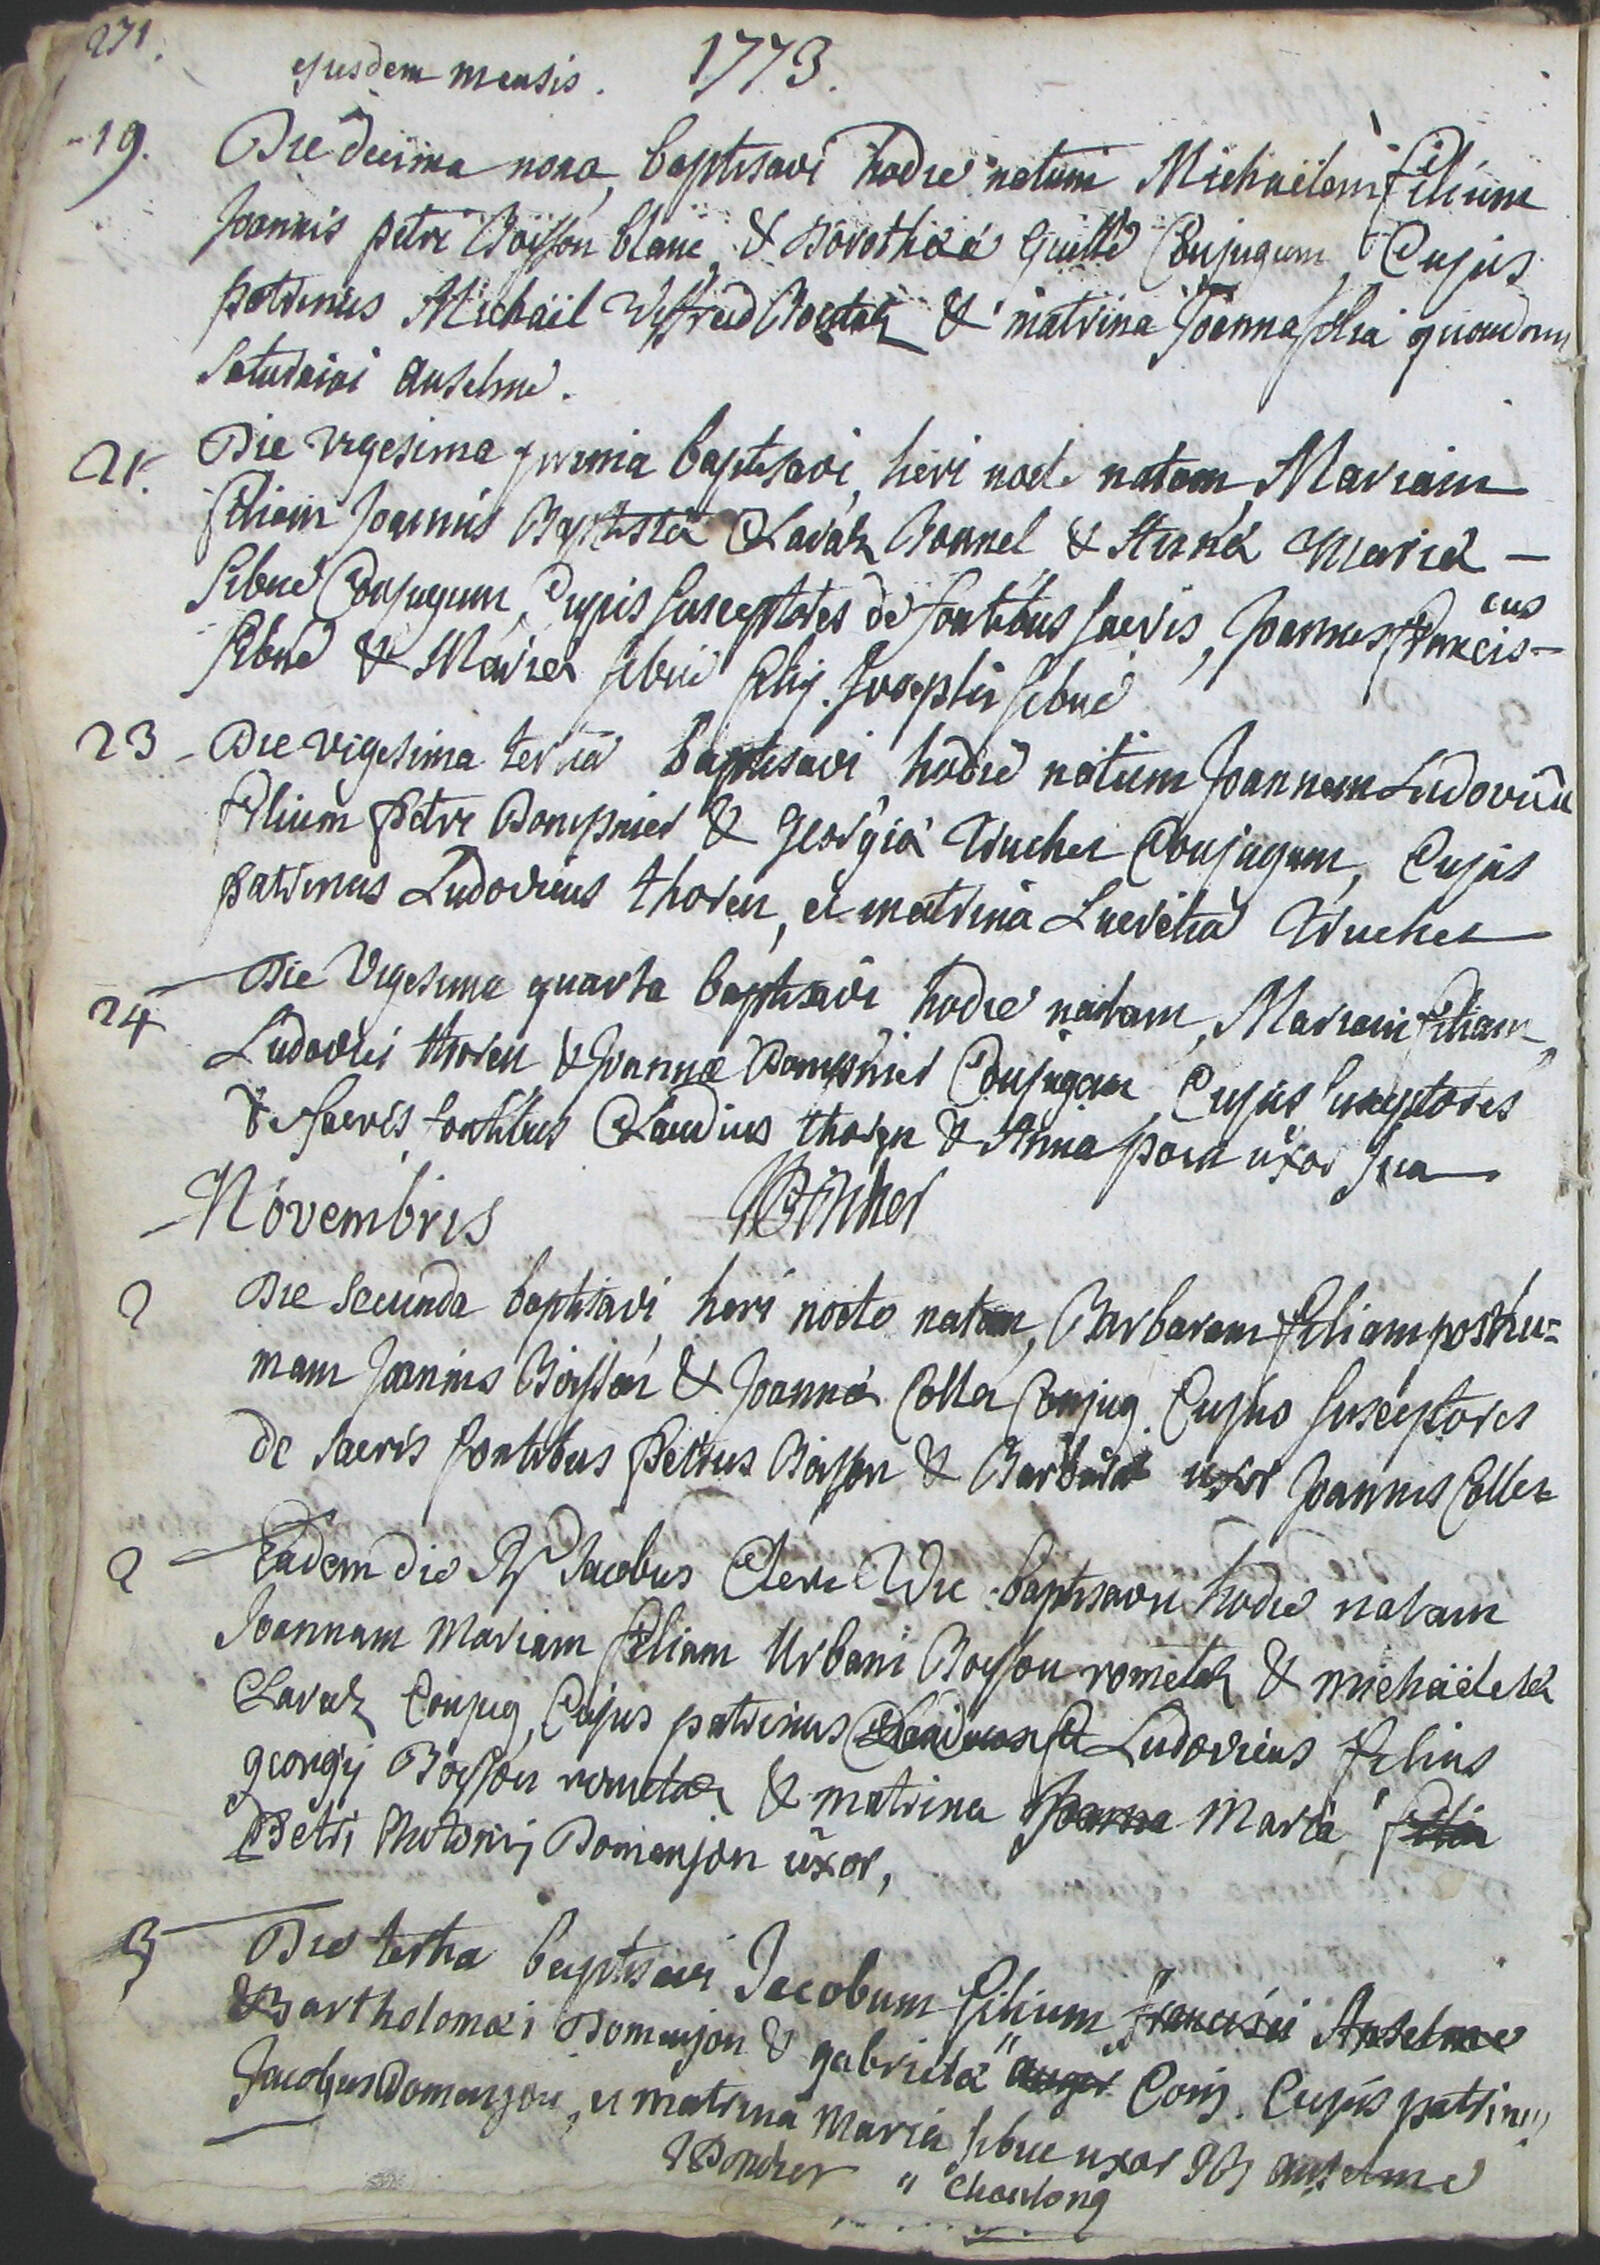 271.
ejusdem mensis. 1773.
19. Die decima nona, baptisavi hodie natum Michaëlem filium
Joannis petri Boisson blanc, & Dorotheæ Guille Conjugum, Cujus
patrinus Michaël & matrina Joanna filia quondam
Saturnini anselme.
21. Die vigesima prima baptisavi, heri nocte natam, Mariam
filiam Joannis Baptistæ Claraz Bonnel & Annæ Mariæ –
sibué Conjugum, Cujus susceptores de fontibus sacris, Joannes Francis-
cus
sibué & Maria sibué filij Josephi sibué
23 – Die vigesima tertia baptisavi hodie natum Joannem Ludovicum
filium petri Dompnier & georgiæ truchet Conjugum, Cujus
patrinus Ludovicus thoren, et matrina Lucretia truchet
24 Die Vigesima quarta baptisavi hodie natam, Mariam filiam
Ludovici thoren & Joannæ Dompnier Conjugum Cujus susceptores
de sacris fontibus Claudius thoren & Anna uxor sua
Novembris
2 Die secunda baptisavi, heri nocte natam, Barbaram filiam posthu=
mam Joannis Boisson & Joannæ Collet Conjug. Cujus susceptores
de sacris fontibus petrus Boisson & Barbara uxor Joannis Collet
2 Eadem die Rd Jacobus Clert baptisavit hodie natam
Joannam Mariam filiam Urbani Boisson rometaz & michaëlæ
Claraz Conjug, Cujus patrinus Ludovicus filius
georgij Boisson rometaz & matrina Joanna Maria filia
Petri Antonij Domenjon uxor,
3 Die tertia baptisavi Jacobum filium francisci Anselme
& Bartholomæi Domenjon & gabrielæ Conj. Cujus patrinus
Jacobus Domenjon, et matrina Maria sibue uxor anselme
" choulong